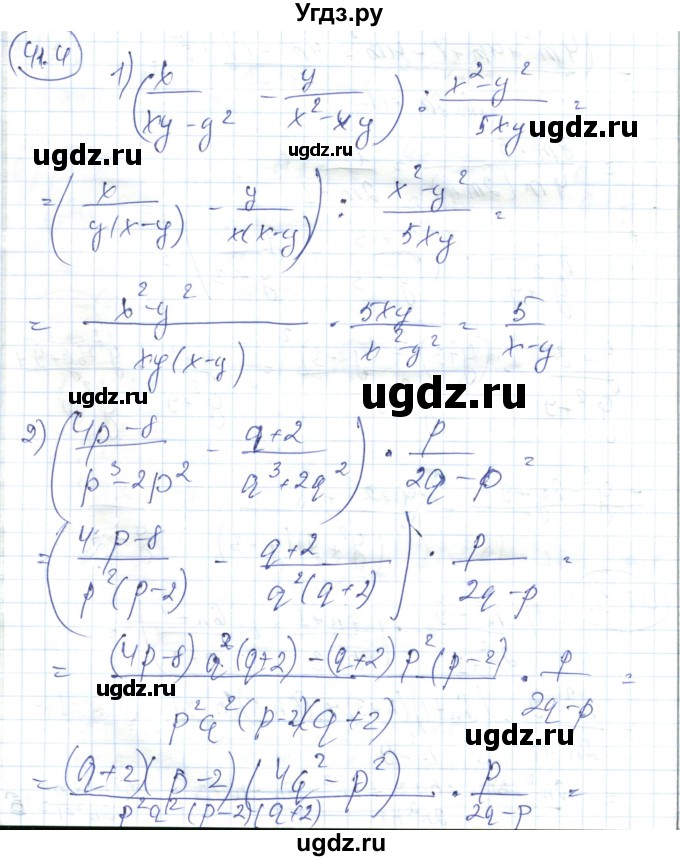 Угдз.ру
41.4
1) (x/(xy-y²) - y/(x²-xy)) : (x²-y²)/(5xy) =
ugdz.ru ugdz.ru ugdz.ru
= (x/(y(x-y)) - y/(x(x-y))) : (x²-y²)/(5xy) =
ugdz.ru
= (x²-y²)/(xy(x-y)) · 5xy/(x²-y²) = 5/(x-y)
ugdz.ru ugdz.ru
2) ((4p-8)/(p³-2p²) - (q+2)/(q³+2q²)) · p/(2q-p) =
ugdz.ru
= ((4p-8)/(p²(p-2)) - (q+2)/(q²(q+2))) · p/(2q-p) =
ugdz.ru ugdz.ru
= ((4p-8)q²(q+2)-(q+2)p²(p-2))/(p²q²(p-2)(q+2)) · p/(2q-p) =
ugdz.ru ugdz.ru
= ((q+2)(p-2)(4q²-p²))/(p²q²(p-2)(q+2)) · p/(2q-p) =
ugdz.ru
ugdz.ru